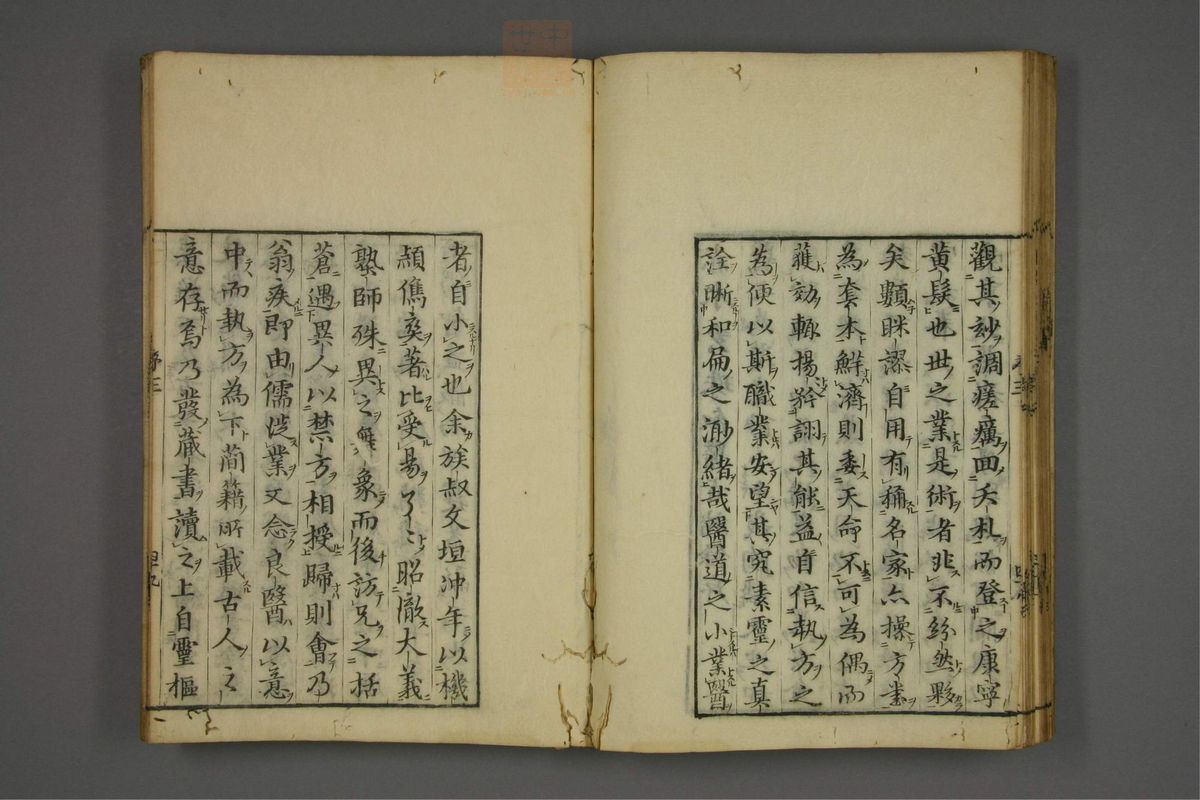 觀其紗調瘥癘回夭札而登之康寧
黄髮也世之業是術者非不紛然夥
矣顋眯謬自用有稱名家亦操方書
為套本鮮濟則委天命不可為偶而
䕶効輙揚矜詡其能益自信執方之
為便以斯職業安望其究素靈之真
詮晰和扁之渺緒哉醫道之小業醫
者自小之也余族叔文垣冲年以機
頴儁爽著比受易了了昭徹大義
塾師殊異之無象而後訪兄之括
蒼遇異人以禁方相授歸則會乃
翁疾即由儒涉業又念良醫以意
中而執方為下簡籍所載古人之
意存焉乃發藏書讀之上自靈樞